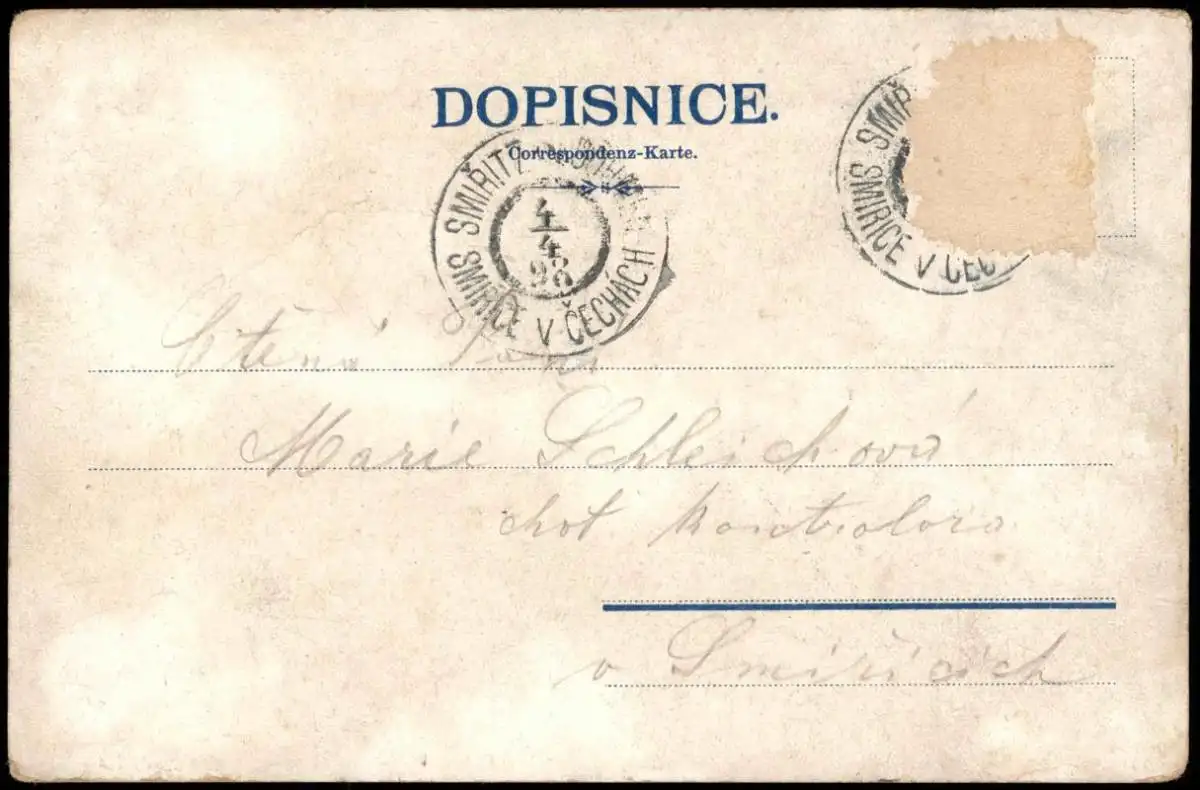 DOPISNICE.
Correspondenz-Karte.
SMIŘITZ
4
4
98
SMIŘICE V ČECHÁCH
SMIŘ
SMIŘICE V ČEC
Ctěná Paní
Marie Schleichová
chot kontrolora
v Smiřicích